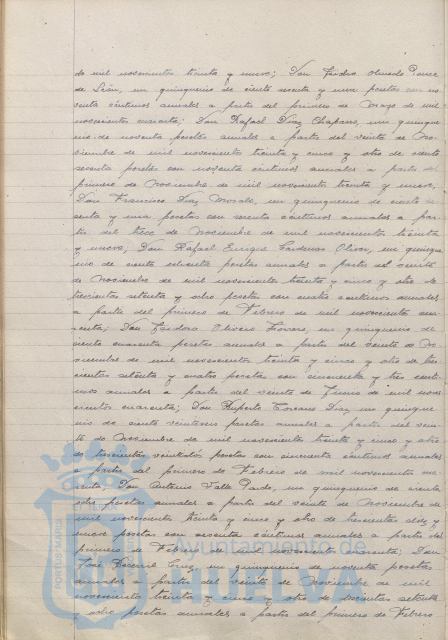 de mil novecientos treinta y nueve; Don Isidro Olmedo Ponce
de León, un quinquenio de ciento sesenta y una pesetas con no
venta céntimos anuales a partir del primero de Mayo de mil
novecientos cuarenta; Don Rafael Díaz Chaparro, un quinque
nio de noventa pesetas anuales a partir del veinte de No
viembre de mil novecientos treinta y cinco y otro de ciento
sesenta pesetas con noventa céntimos anuales a partir del
primero de Noviembre de mil novecientos treinta y nueve;
Don Francisco Díaz Morale, un quinquenio de ciento se
senta y una pesetas con céntimos anuales a par
tir del trece de Noviembre de mil novecientos treinta
y nueve; Don Rafael Enrique Cárdenas Oliver, un quinque
nio de ciento pesetas anuales a partir del veinte
de Noviembre de mil novecientos treinta y cinco y otro de
trescientas setenta y ocho pesetas con cuatro céntimos anuales
a partir del primero de Febrero de mil novecientos cua
renta; Don Isidoro Olivero un quinquenio de
ciento cuarenta pesetas anuales a partir del veinte de No
viembre de mil novecientos treinta y cinco y otro de tres
cientas setenta y cuatro pesetas con cincuenta y tres cénti
mos anuales a partir del veinte de Junio de mil nove
cientos cuarenta; Don Ruperto Toscano Díaz un quinque
nio de ciento pesetas anuales a partir del vein
te de Noviembre de mil novecientos treinta y cinco y otro
de trescientas pesetas con cincuenta céntimos anuales
a partir del primero de Febrero de mil novecientos cua
renta; Don Antonio Valle Pardo, un quinquenio de ciento
ocho pesetas anuales a partir del veinte de Noviembre de
mil novecientos treinta y cinco y otro de doscientas diez y
nueve pesetas con sesenta céntimos anuales a partir del
primero de Febrero de mil novecientos cuarenta; Don
José Becerril Cruz, un quinquenio de noventa pesetas
anuales a partir del veinte de Noviembre de mil
novecientos treinta y cinco y otro de doscientas setenta
y ocho pesetas anuales a partir del primero de Febrero
PORTUS MARIS
Ayuntamiento de
HUELVA